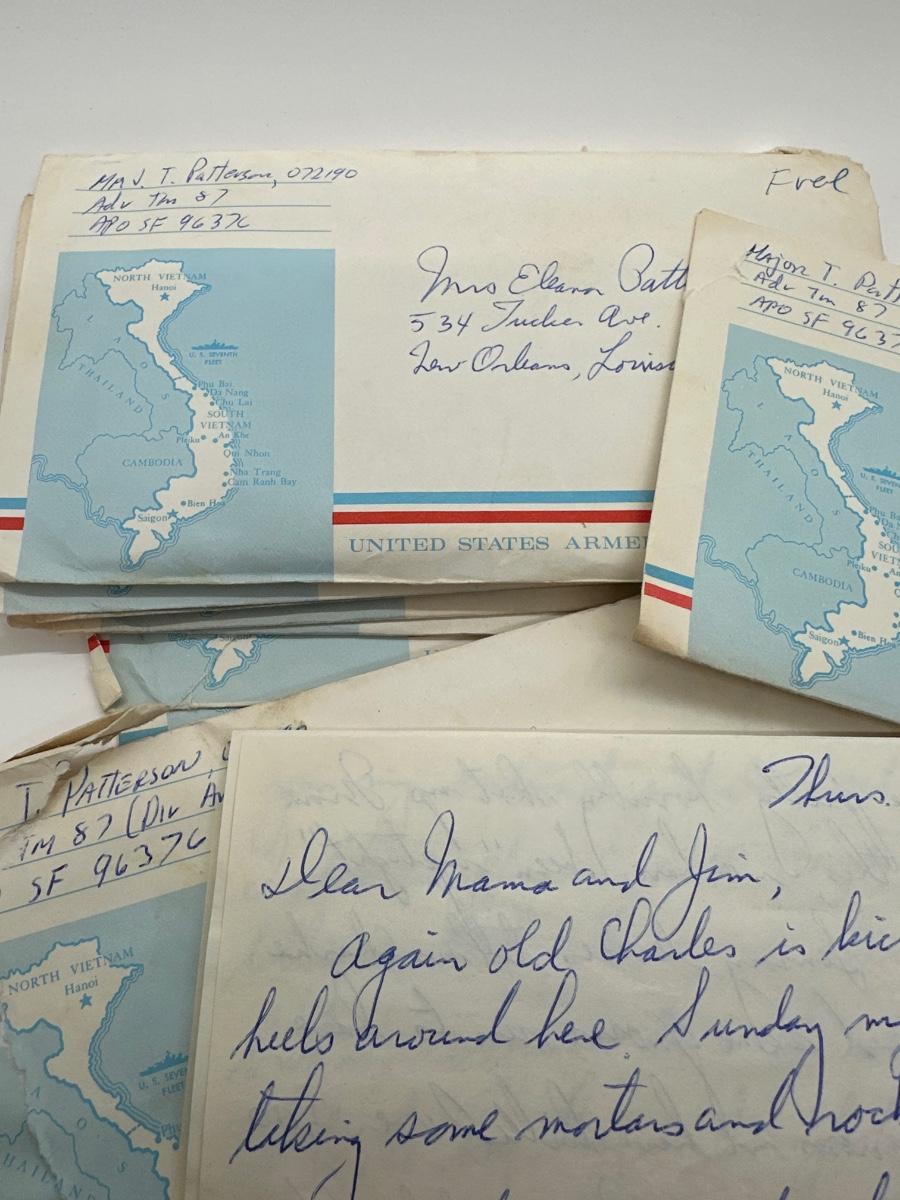 MAJ. T. Patterson, 072190
Adv Tm 87
APO SF 96376
Free
Mrs Eleanor Patt
534 Tucker Ave.
New Orleans, Louisi
NORTH VIETNAM
Hanoi
LAOS
THAILAND
U. S. SEVENTH
FLEET
Phu Bai
Da Nang
Chu Lai
SOUTH
VIETNAM
Pleiku
An Khe
Qui Nhon
CAMBODIA
Nha Trang
Cam Ranh Bay
Bien Hoa
Saigon
UNITED STATES ARME
Major T. Patt
Adv Tm 87
APO SF 9637
NORTH VIETNAM
Hanoi
LAOS
THAILAND
U. S. SEVE
FLEET
Phu Ba
Da
SOU
VIE
Pleiku
An
CAMBODIA
Bien H
Saigon
Saigon
T. PATTERSON,
TM 87 (Div Av
SF 96376
NORTH VIETNAM
Hanoi
U. S. SEVE
FLEET
Phu
HAILAND
Thurs.
Dear Mama and Jim,
Again old Charles is kic
heels around here. Sunday
taking some mortars and rock